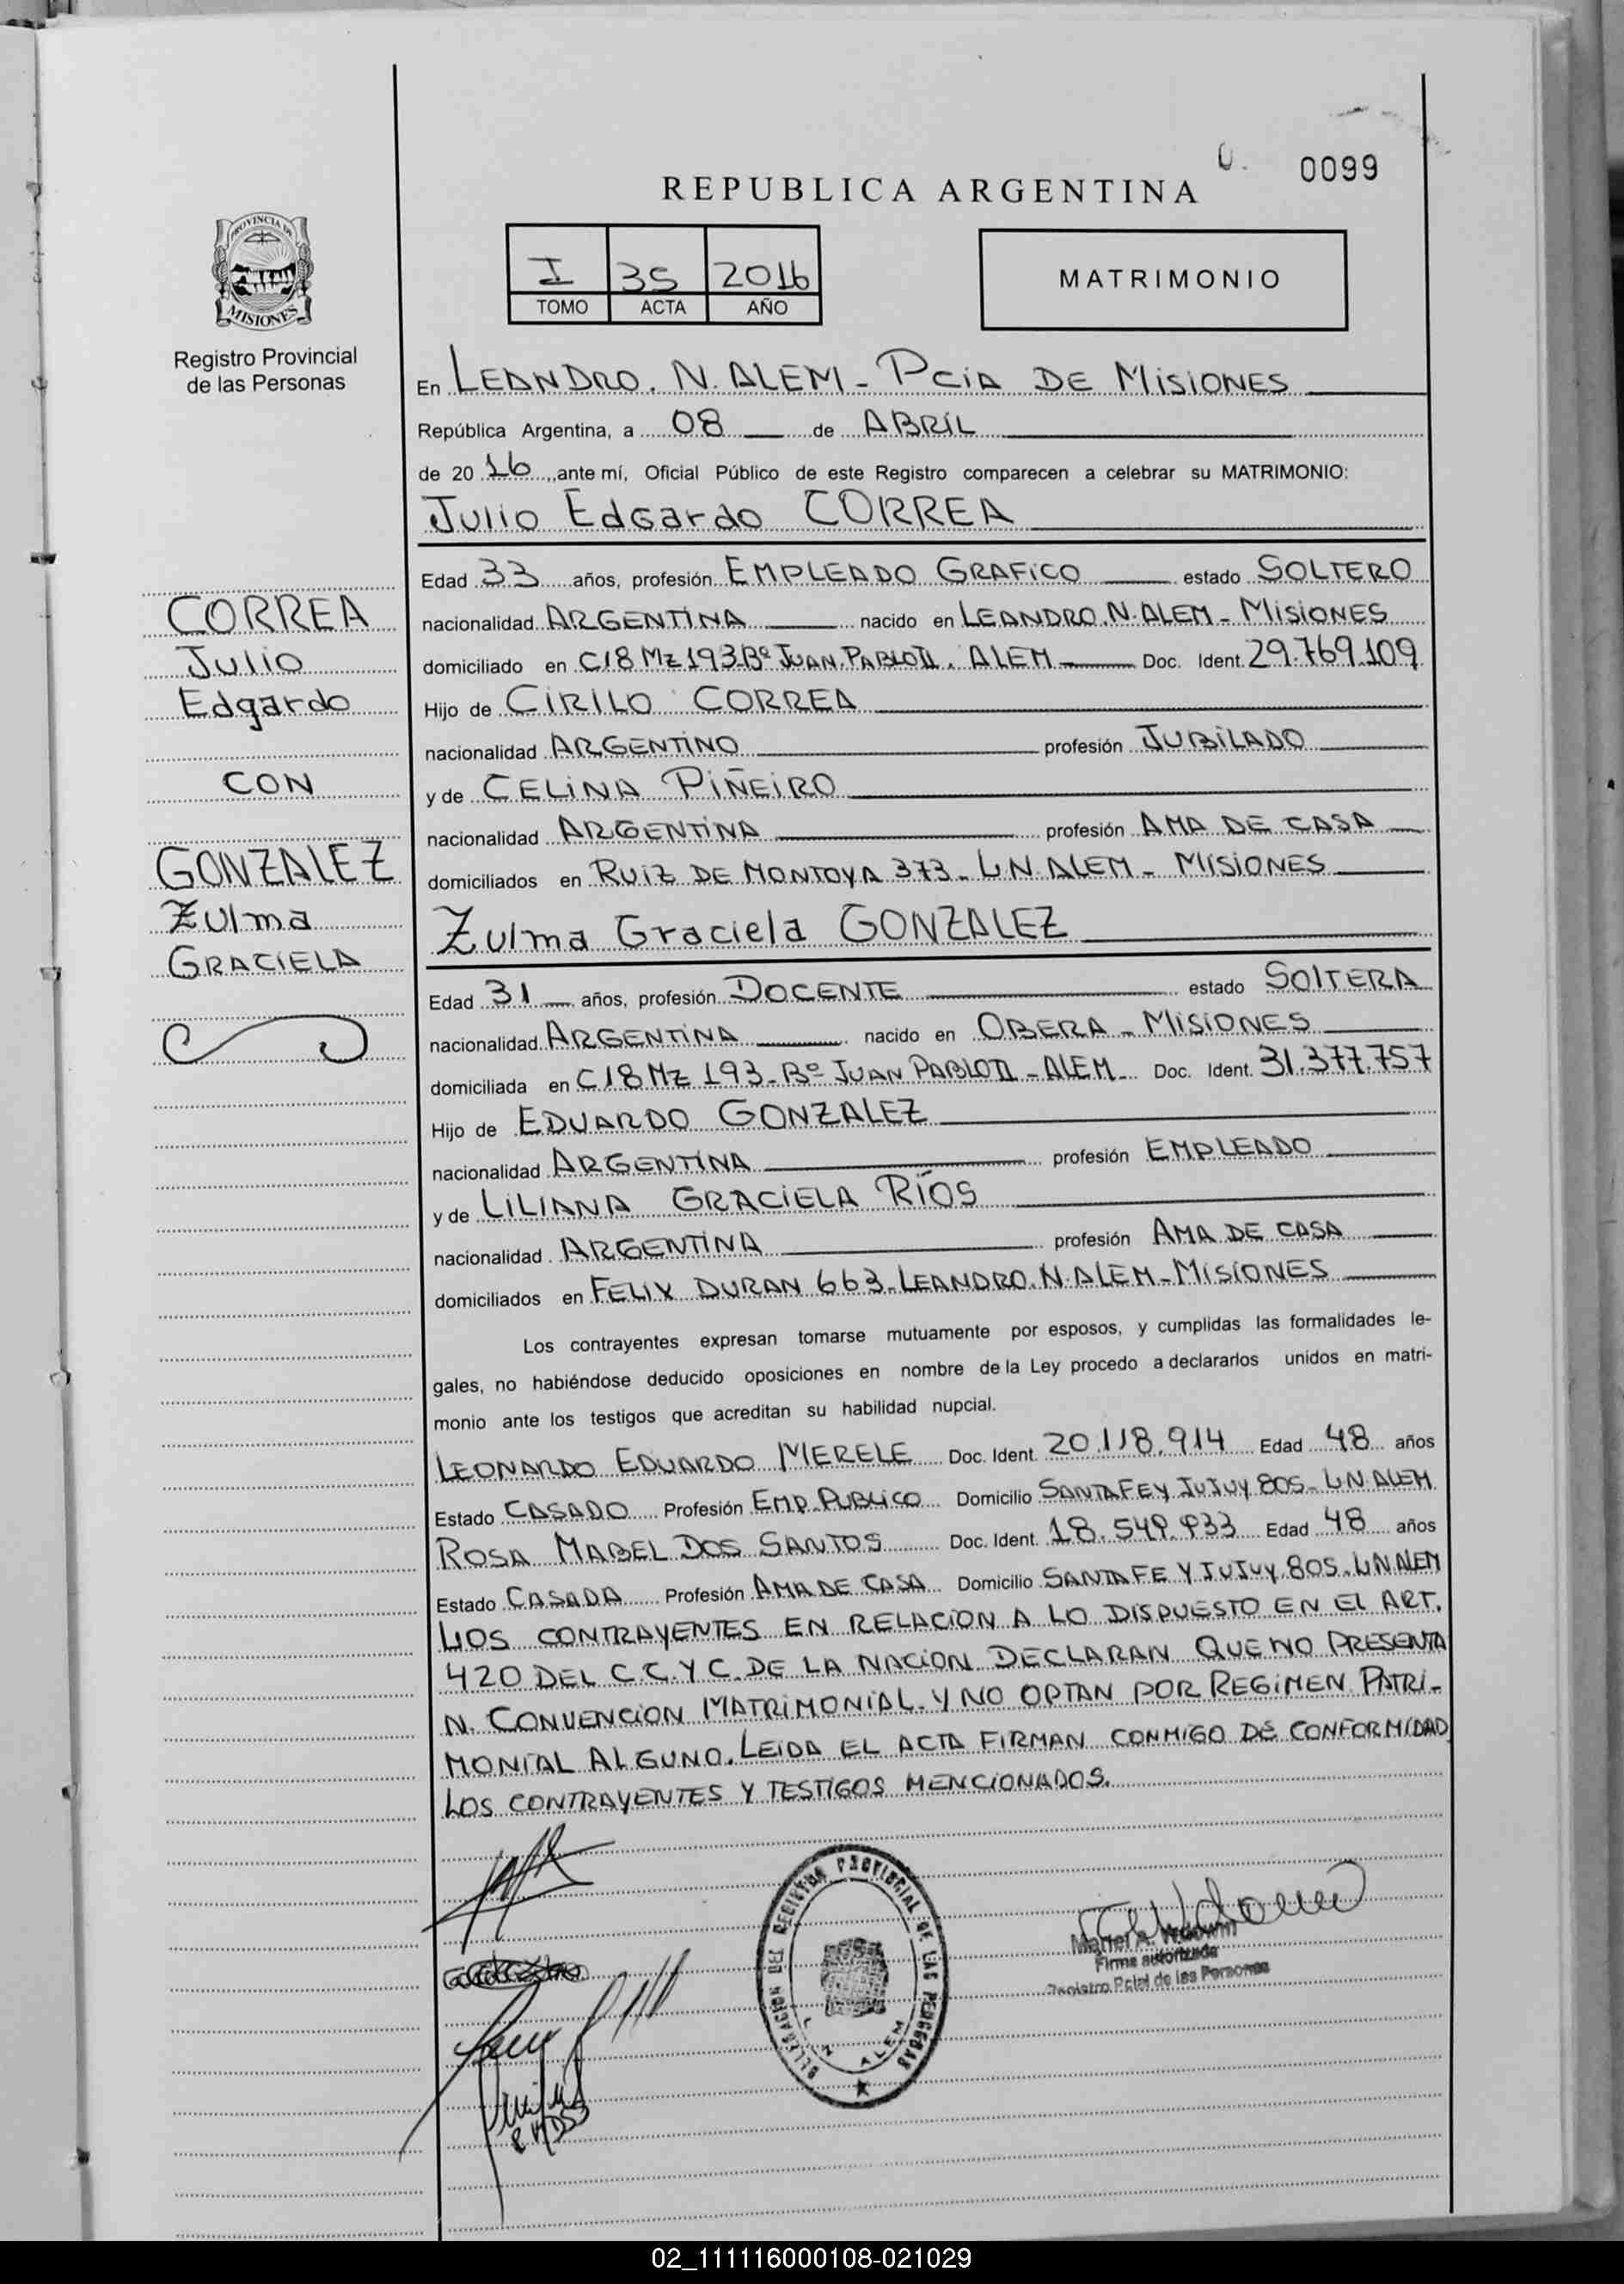 0099
REPUBLICA ARGENTINA
PROVINCIA DE
MISIONES
Registro Provincial
de las Personas
I 35 2016
TOMO ACTA AÑO
MATRIMONIO
En LEANDRO. N. ALEM - PCIA DE MISIONES
República Argentina, a 08 de ABRIL
de 20 16 ante mí, Oficial Público de este Registro comparecen a celebrar su MATRIMONIO:
Julio Edgardo CORREA
CORREA
Julio
Edgardo
CON
GONZALEZ
Zulma
GRACIELA
Edad 33 años, profesión EMPLEADO GRAFICO estado SOLTERO
nacionalidad ARGENTINA nacido en LEANDRO.N.ALEM - MISIONES
domiciliado en C18 Mz 193-Bº JUAN PABLO II. ALEM Doc. Ident. 29.769.109
Hijo de CIRILO CORREA
nacionalidad ARGENTINO profesión JUBILADO
y de CELINA PIÑEIRO
nacionalidad ARGENTINA profesión AMA DE CASA
domiciliados en RUIZ DE MONTOYA 373 - L.N.ALEM - MISIONES
Zulma Graciela GONZALEZ
Edad 31 años, profesión DOCENTE estado SOLTERA
nacionalidad ARGENTINA nacido en OBERA - MISIONES
domiciliada en C18 Mz 193 - Bº JUAN PABLO II - ALEM Doc. Ident. 31.377.757
Hijo de EDUARDO GONZALEZ
nacionalidad ARGENTINA profesión EMPLEADO
y de LILIANA GRACIELA RÍOS
nacionalidad ARGENTINA profesión AMA DE CASA
domiciliados en FELIX DURAN 663-LEANDRO.N.ALEM-MISIONES
Los contrayentes expresan tomarse mutuamente por esposos, y cumplidas las formalidades le-
gales, no habiéndose deducido oposiciones en nombre de la Ley procedo a declararlos unidos en matri-
monio ante los testigos que acreditan su habilidad nupcial.
LEONARDO EDUARDO MERELE Doc. Ident. 20.118.914 Edad 48 años
Estado CASADO Profesión EMP. PUBLICO Domicilio SANTA FE Y JUJUY 805 - L.N ALEM
ROSA MABEL DOS SANTOS Doc. Ident. 18.549.933 Edad 48 años
Estado CASADA Profesión AMA DE CASA Domicilio SANTA FE Y JUJUY 805. L.N ALEM
LOS CONTRAYENTES EN RELACION A LO DISPUESTO EN EL ART.
420 DEL C.C.Y C. DE LA NACION DECLARAN QUE NO PRESENTA
N. CONVENCION MATRIMONIAL Y NO OPTAN POR REGIMEN PATRI-
MONIAL ALGUNO. LEIDA EL ACTA FIRMAN CONMIGO DE CONFORMIDAD
LOS CONTRAYENTES Y TESTIGOS MENCIONADOS.
DELEGACION DEL REGISTRO PROVINCIAL DE LAS PERSONAS
L N ALEM
Firma autorizada
Registro Pcial de las Personas
02_111116000108-021029